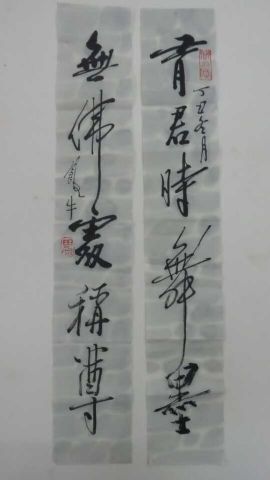 肯君時舞墨
丁丑冬月
無佛處稱尊
牛